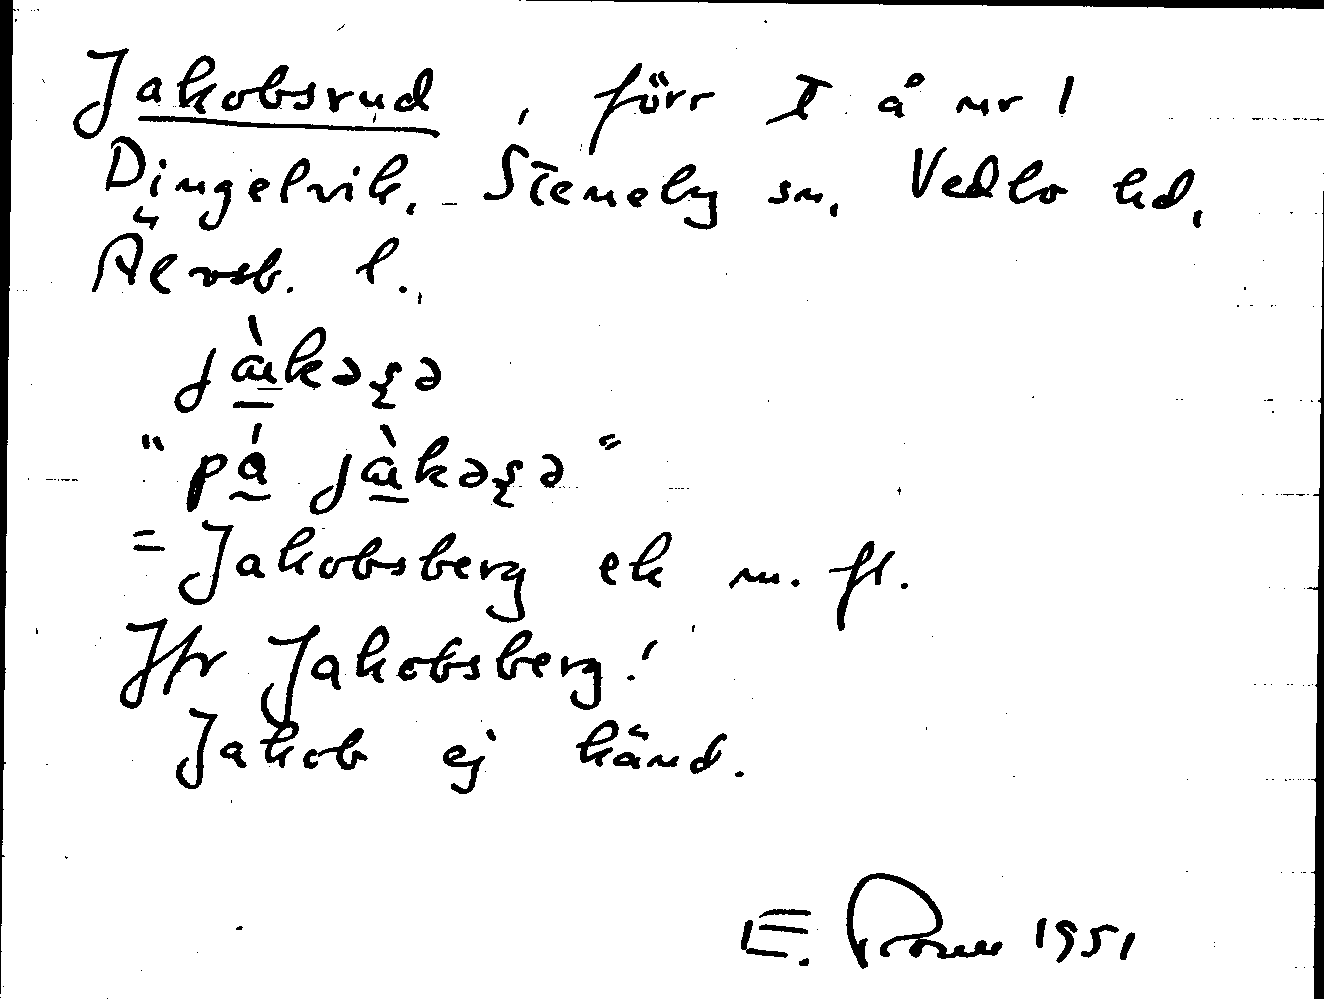 Jakobsrud, förr T å nr 1
Dingelvik, Steneby sn, Vedbo hd,
Älvsb. l.
jàkəʂə
"pǻ jàkəʂə"
= Jakobsberg ek m. fl.
Jfr Jakobsberg!
Jakob ej känd.
E. 1951